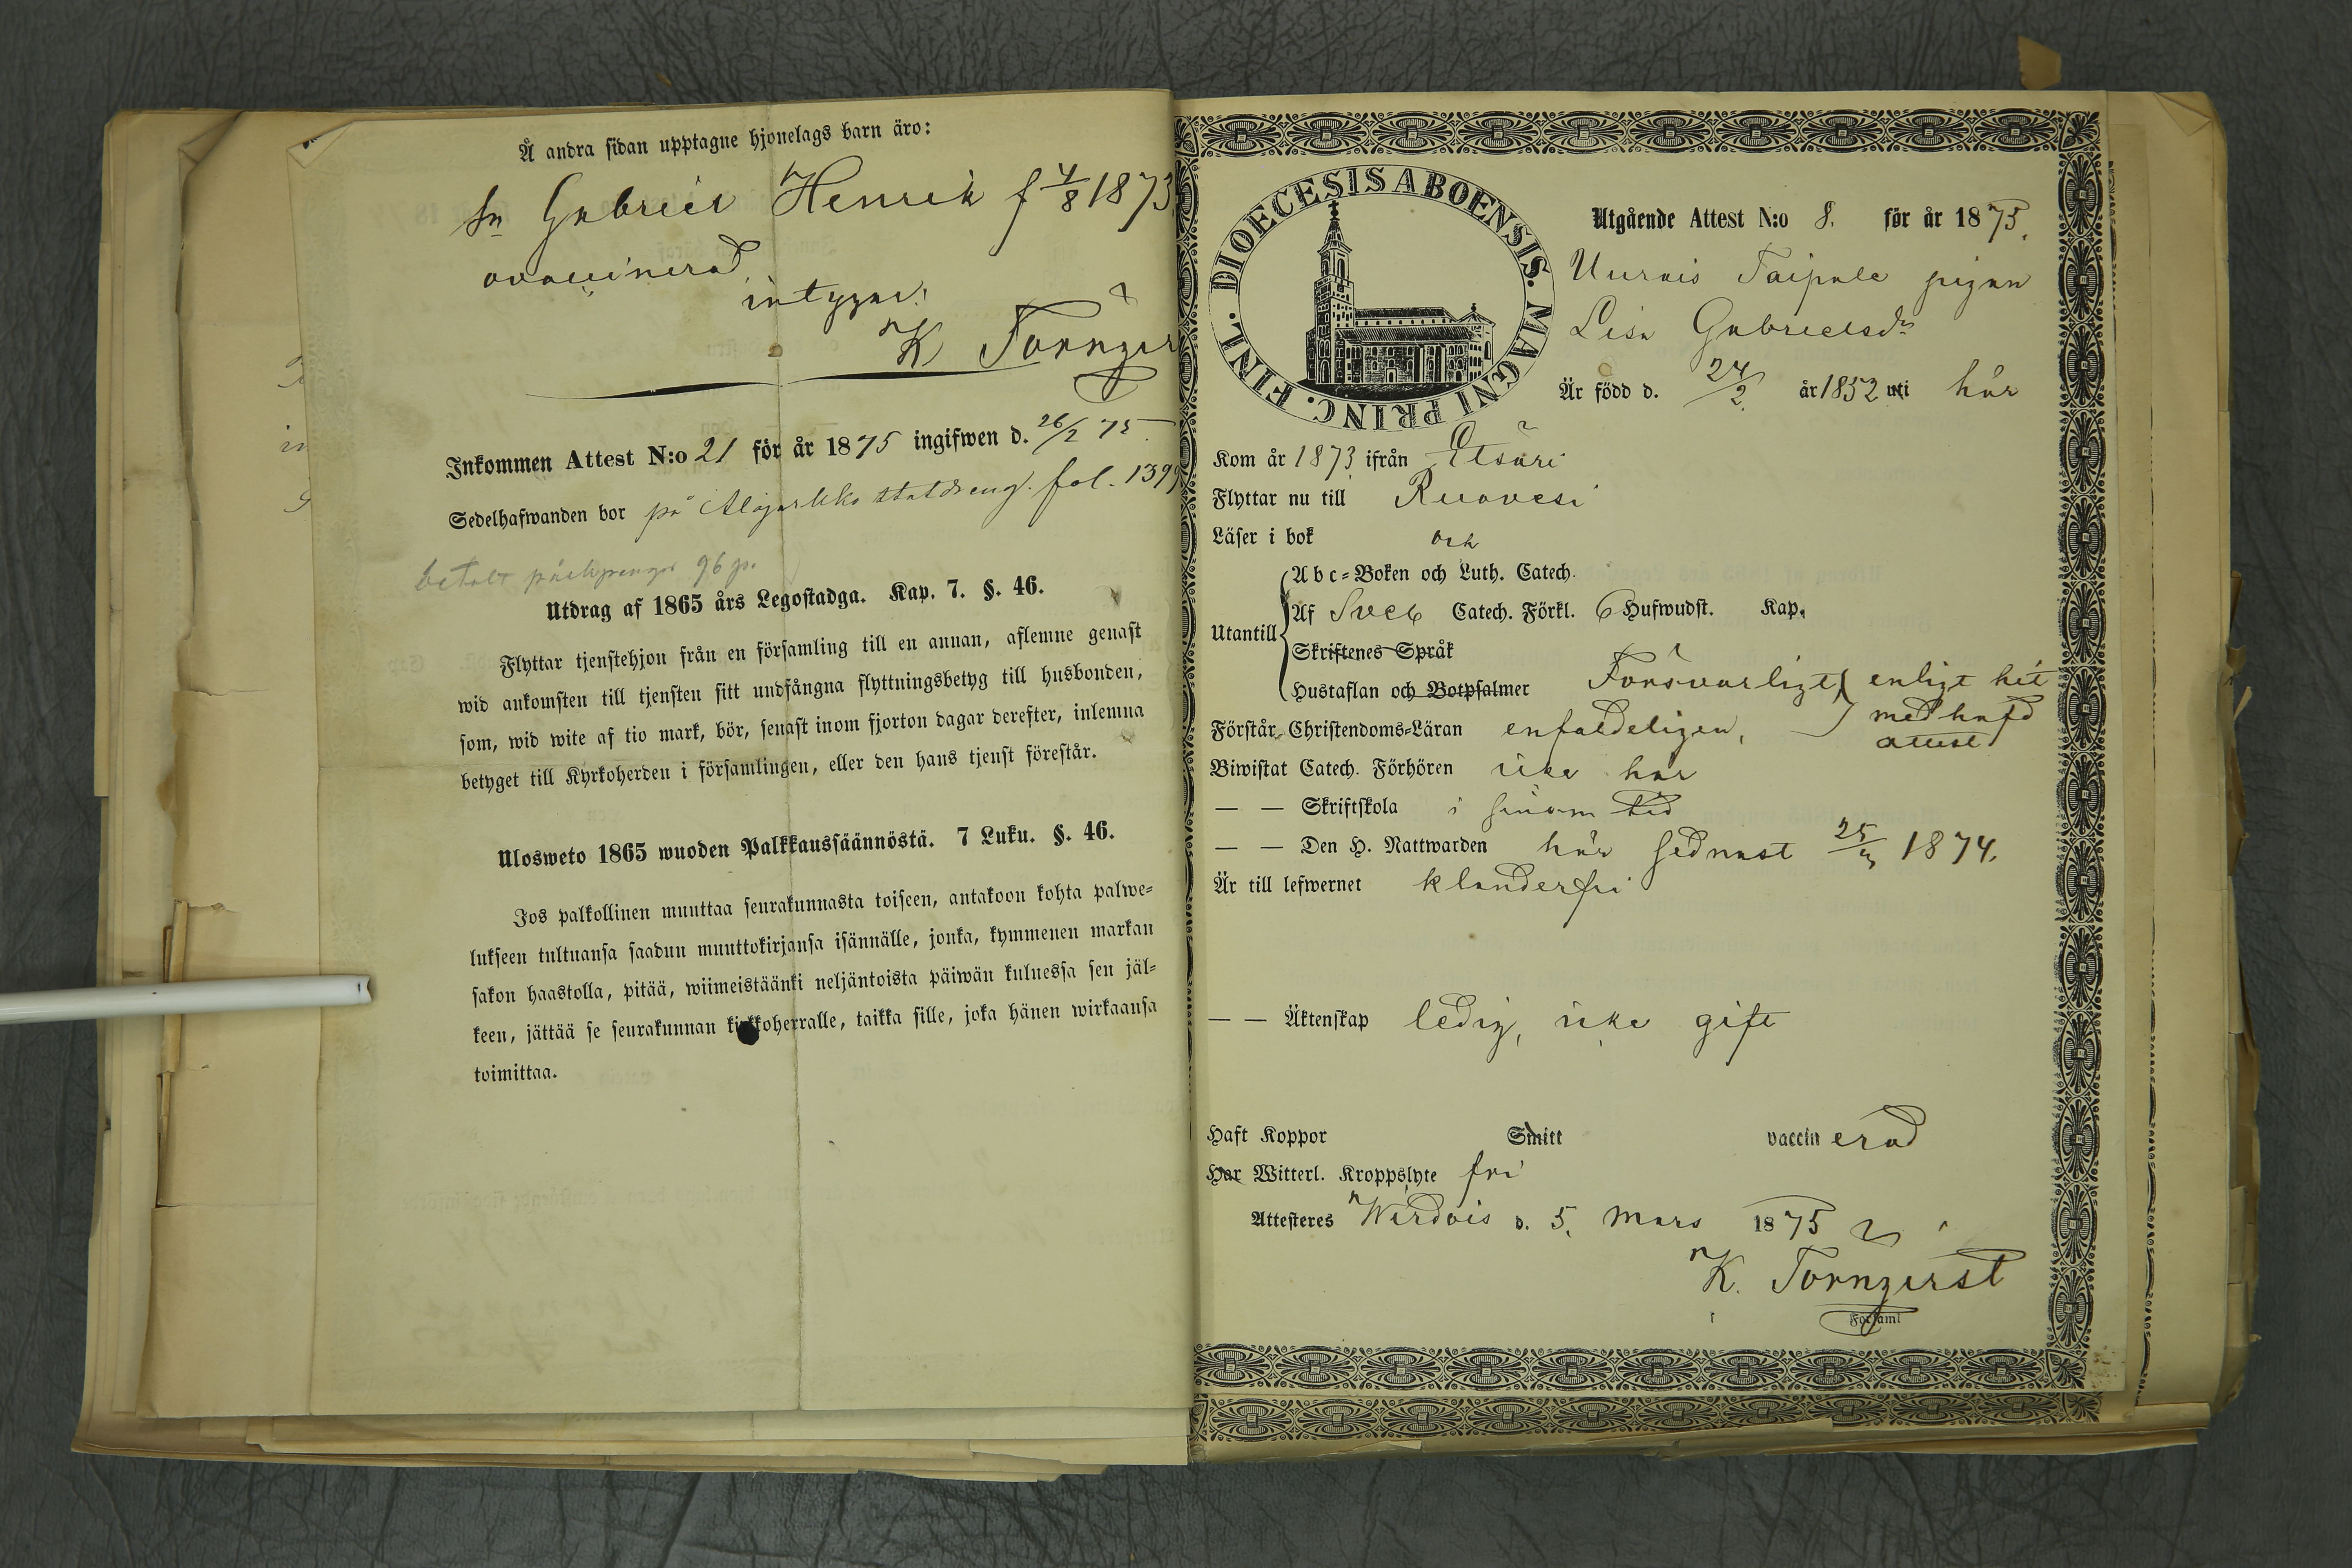 Å andra sidan upptagne hjonelags barn äro:
Sn Gabriel Henrik f 4/8 1873
ovaccinerad
intygar:
K Törnqv
Inkommen Attest N:o 21 för år 1875 ingifwen d. 26/2 75
Sedelhafwanden bor på fol. 1399
betalt 96 p.
Utdrag af 1865 års Legostadga. Kap. 7. §. 46.
Flyttar tjenstehjon från en församling till en annan, aflemne genast
wid ankomsten till tjensten sitt undfångna flyttningsbetyg till husbonden,
som, wid wite af tio mark, bör, senast inom fjorton dagar derefter, inlemna
betyget till Kyrkoherden i församlingen, eller den hans tjenst förestår.
Ulosweto 1865 wuoden Palkkaussäännöstä. 7 Luku. §. 46.
Jos palkollinen muuttaa seurakunnasta toiseen, antakoon kohta palwe-
lukseen tultuansa saadun muuttokirjansa isännälle, jonka, kymmenen markan
sakon haastolla, pitää, wiimeistäänki neljäntoista päiwän kuluessa sen jäl-
keen, jättää se seurakunnan kirkkoherralle, taikka sille, joka hänen wirkaansa
toimittaa.
DIOECESIS ABOENSIS. MAGNI PRINC. FINL.
Utgående Attest N:o 8. för år 1875.
Uurais Taipale pigan
Lisa Gabrielsdr
Är född d. 24/2. år 1852 uti här
Kom år 1873 ifrån Etsäri
Flyttar nu till Ruovesi
Läser i bok och
Abc-Boken och Luth. Catech.
Utantill Af Sveb Catech. Förkl. 6 Hufwudst. Kap.
Skriftenes Språk
Hustaflan och Botpsalmer Försvarligt enligt hit
medhafd
attest
Förstår Christendoms-Läran enfaldeligen,
Biwistat Catech. Förhören icke här
— — Skriftskola i sinom tid
— — Den H. Nattwarden här sednast 25/ 1874.
Är till lefwernet klanderfri
— — Äktenskap ledig, icke gift
Haft Koppor Smitt vaccinerad
Har Witterl. Kroppslyte fri
Attesteras Wirdois d. 5. Mars 1875
K. Törnqvist
Församl